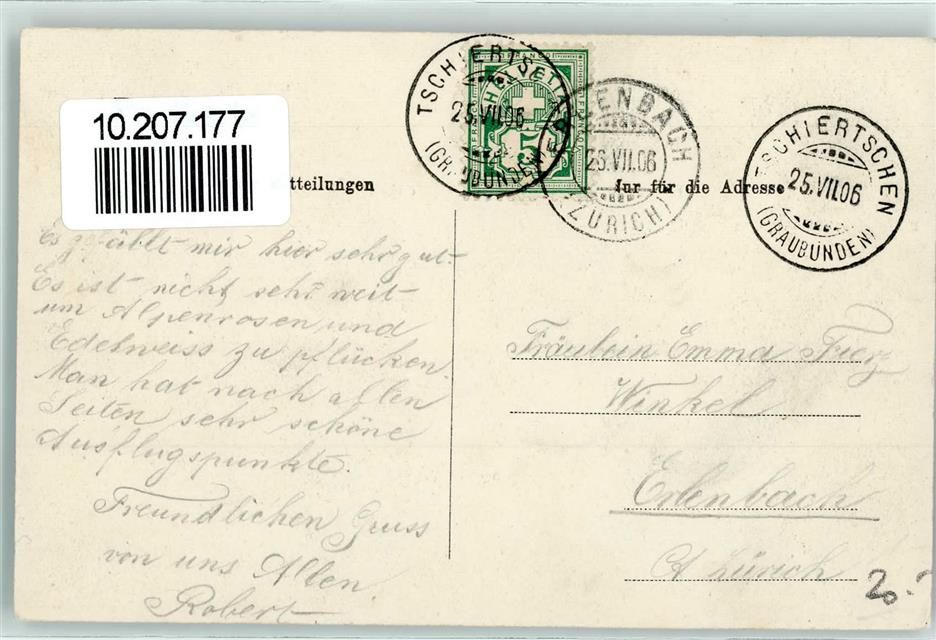 10.207.177
TSCHIERTSCHEN
25.VII.06
(GRAUBÜNDEN)
HELVETIA
FRANCO
5
ERLENBACH
26.VII.06
(ZÜRICH)
TSCHIERTSCHEN
25.VII.06
(GRAUBÜNDEN)
tteilungen
Nur für die Adresse
Es gefällt mir hier sehr gut.
Es ist nicht sehr weit
um Alpenrosen und
Edelweiss zu pflücken.
Man hat nach allen
Seiten sehr schöne
Ausflugspunkte.
Freundlichen Gruss
von uns Allen.
Robert
Fräulein Emma
Winkel
Erlenbach
Ct Zürich
20.